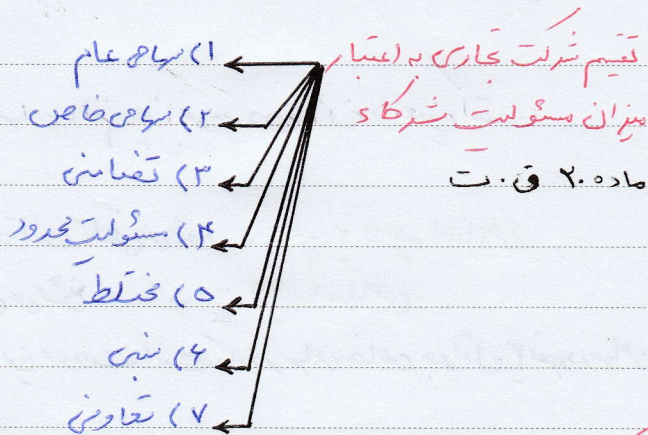 تقسیم شرکت تجاری به اعتبار
میزان مسئولیت شرکاء
ماده ۲۰ ق.ت
۱) سهامی عام
۲) سهامی خاص
۳) تضامنی
۴) مسئولیت محدود
۵) مختلط
۶) نسبی
۷) تعاونی